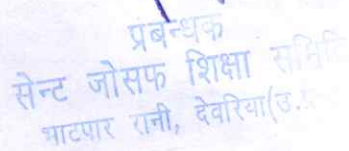 प्रबन्धक
सेन्ट जोसफ शिक्षा समिति
भाटपार रानी, देवरिया(उ.